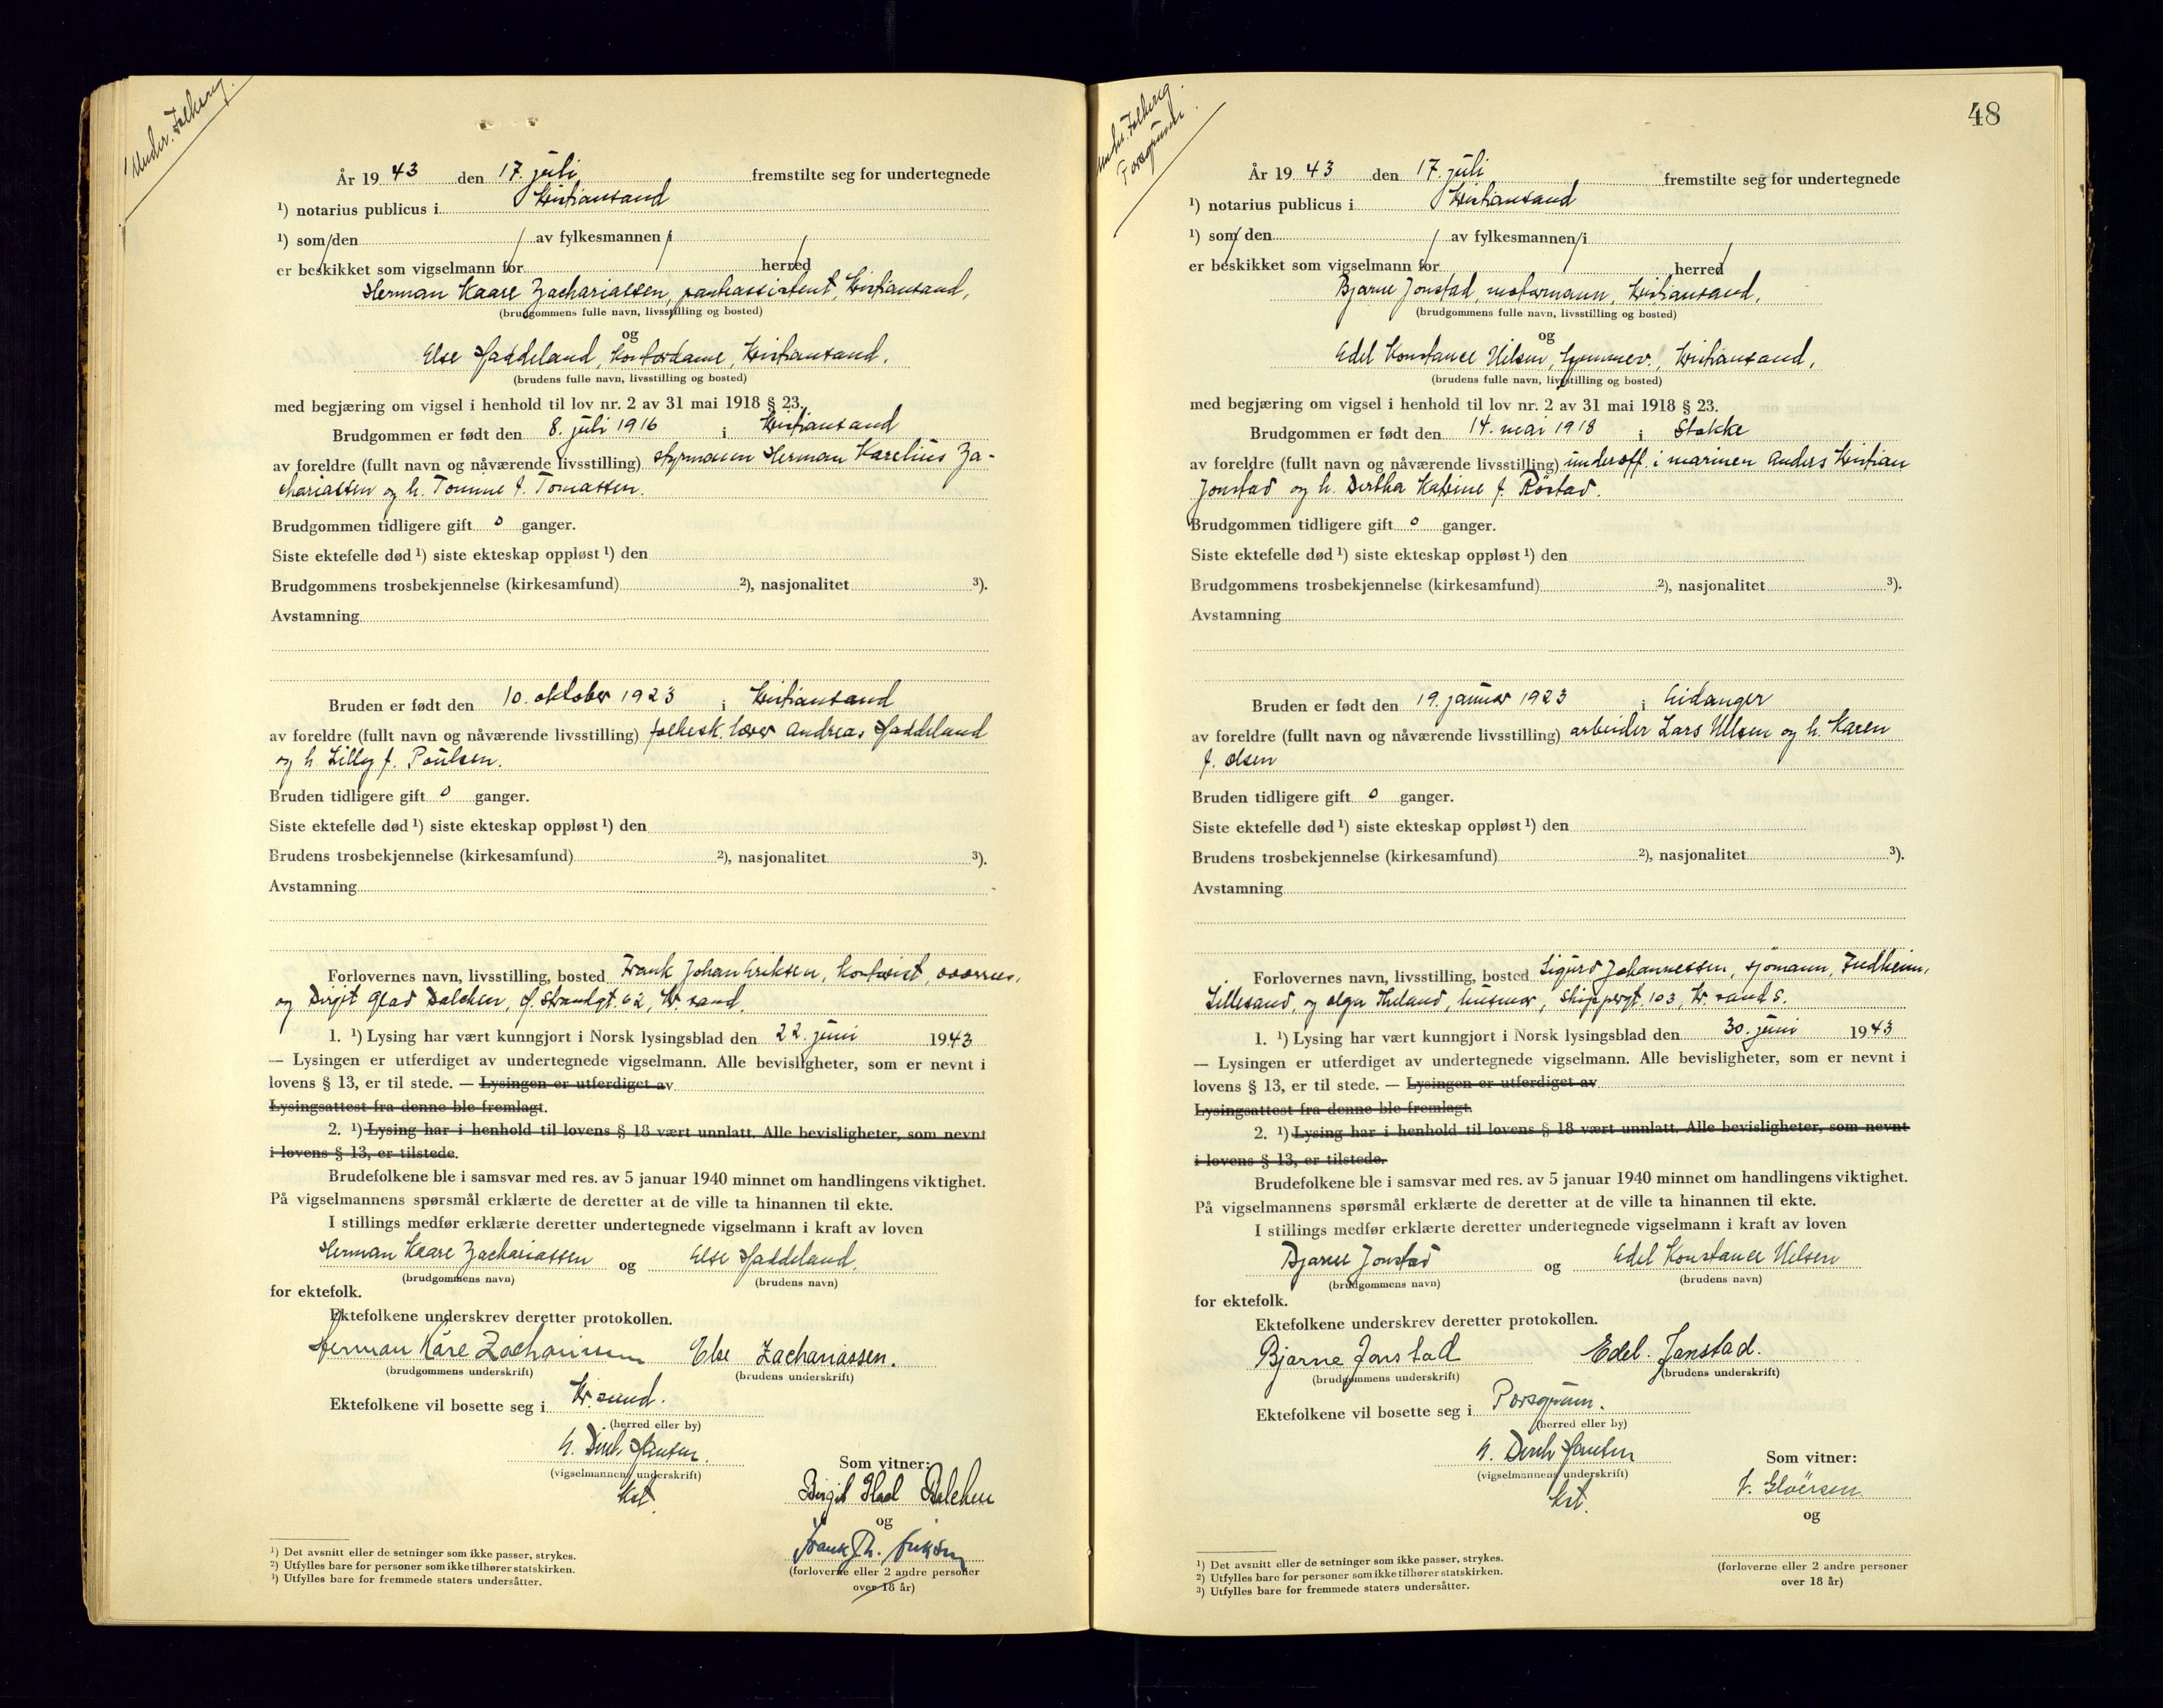 Under. Folkereg.
År 19 43 den 17. juli fremstilte seg for undertegnede
¹) notarius publicus i Kristiansand
¹) som den av fylkesmannen i
er beskikket som vigselmann for herred
Herman Kaare Zachariassen, bankassistent, Kristiansand,
(brudgommens fulle navn, livsstilling og bosted)
og
Else Haddeland, kontordame, Kristiansand,
(brudens fulle navn, livsstilling og bosted)
med begjæring om vigsel i henhold til lov nr. 2 av 31 mai 1918 § 23.
Brudgommen er født den 8. juli 1916 i Kristiansand
av foreldre (fullt navn og nåværende livsstilling) styrmann Herman Karelius Za-
chariassen og h. Tomine f. Tomassen.
Brudgommen tidligere gift 0 ganger.
Siste ektefelle død ¹) siste ekteskap oppløst ¹) den
Brudgommens trosbekjennelse (kirkesamfund) ²), nasjonalitet ³).
Avstamning
Bruden er født den 10. oktober 1923 i Kristiansand
av foreldre (fullt navn og nåværende livsstilling) folkesk. lærer Andreas Haddeland
og h. Lilly f. Poulsen.
Bruden tidligere gift 0 ganger.
Siste ektefelle død ¹) siste ekteskap oppløst ¹) den
Brudens trosbekjennelse (kirkesamfund) ²), nasjonalitet ³).
Avstamning
Forlovernes navn, livsstilling, bosted Frank Johan Eriksen, kontorist,
og Birgit Glad Balchen, Strandgt. 62, Kr.sand.
1. ¹) Lysing har vært kunngjort i Norsk lysingsblad den 22. juni 1943
— Lysingen er utferdiget av undertegnede vigselmann. Alle bevisligheter, som er nevnt i
lovens § 13, er til stede. — Lysingen er utferdiget av
Lysingsattest fra denne ble fremlagt.
2. ¹) Lysing har i henhold til lovens § 18 vært unnlatt. Alle bevisligheter, som nevnt
i lovens § 13, er tilstede.
Brudefolkene ble i samsvar med res. av 5 januar 1940 minnet om handlingens viktighet.
På vigselmannens spørsmål erklærte de deretter at de ville ta hinannen til ekte.
I stillings medfør erklærte deretter undertegnede vigselmann i kraft av loven
Herman Kaare Zachariassen og Else Haddeland.
(brudgommens navn) (brudens navn)
for ektefolk.
Ektefolkene underskrev deretter protokollen.
Herman Kåre Zachariassen Else Zachariassen.
(brudgommens underskrift) (brudens underskrift)
Ektefolkene vil bosette seg i Kr.sand.
(herred eller by)
Hansen.
(vigselmannens underskrift)
Kst.
Som vitner:
Birgit Glad Balchen
og
Frank Joh. Eriksen
(forloverne eller 2 andre personer
over 18 år)
¹) Det avsnitt eller de setninger som ikke passer, strykes.
²) Utfylles bare for personer som ikke tilhører statskirken.
³) Utfylles bare for fremmede staters undersåtter.
48
Folkereg.
Porsgrunn
År 19 43 den 17. juli fremstilte seg for undertegnede
¹) notarius publicus i Kristiansand
¹) som den av fylkesmannen i
er beskikket som vigselmann for herred
Bjarne Jonstad, motormann, Kristiansand,
(brudgommens fulle navn, livsstilling og bosted)
og
Edel Konstance Nilsen, hjemmev., Kristiansand,
(brudens fulle navn, livsstilling og bosted)
med begjæring om vigsel i henhold til lov nr. 2 av 31 mai 1918 § 23.
Brudgommen er født den 14. mai 1918 i Stokke
av foreldre (fullt navn og nåværende livsstilling) underoff. i marinen Anders Kristian
Jonstad og h. Bertha Katrine f. Röstad.
Brudgommen tidligere gift 0 ganger.
Siste ektefelle død ¹) siste ekteskap oppløst ¹) den
Brudgommens trosbekjennelse (kirkesamfund) ²), nasjonalitet ³).
Avstamning
Bruden er født den 19. januar 1923 i Eidanger
av foreldre (fullt navn og nåværende livsstilling) arbeider Lars Nilsen og h. Karen
f. Olsen
Bruden tidligere gift 0 ganger.
Siste ektefelle død ¹) siste ekteskap oppløst ¹) den
Brudens trosbekjennelse (kirkesamfund) ²), nasjonalitet ³).
Avstamning
Forlovernes navn, livsstilling, bosted Sigurd Johannessen, sjömann,
Lillesand, og Olga husmor, Skippergt. 103, Kr.sand S.
1. ¹) Lysing har vært kunngjort i Norsk lysingsblad den 30. juni 1943
— Lysingen er utferdiget av undertegnede vigselmann. Alle bevisligheter, som er nevnt i
lovens § 13, er til stede. — Lysingen er utferdiget av
Lysingsattest fra denne ble fremlagt.
2. ¹) Lysing har i henhold til lovens § 18 vært unnlatt. Alle bevisligheter, som nevnt
i lovens § 13, er tilstede.
Brudefolkene ble i samsvar med res. av 5 januar 1940 minnet om handlingens viktighet.
På vigselmannens spørsmål erklærte de deretter at de ville ta hinannen til ekte.
I stillings medfør erklærte deretter undertegnede vigselmann i kraft av loven
Bjarne Jonstad og Edel Konstance Nilsen
(brudgommens navn) (brudens navn)
for ektefolk.
Ektefolkene underskrev deretter protokollen.
Bjarne Jonstad Edel. Jonstad.
(brudgommens underskrift) (brudens underskrift)
Ektefolkene vil bosette seg i Porsgrunn.
(herred eller by)
Hansen
(vigselmannens underskrift)
Kst.
Som vitner:
J. Glöersen
og
(forloverne eller 2 andre personer
over 18 år)
¹) Det avsnitt eller de setninger som ikke passer, strykes.
²) Utfylles bare for personer som ikke tilhører statskirken.
³) Utfylles bare for fremmede staters undersåtter.